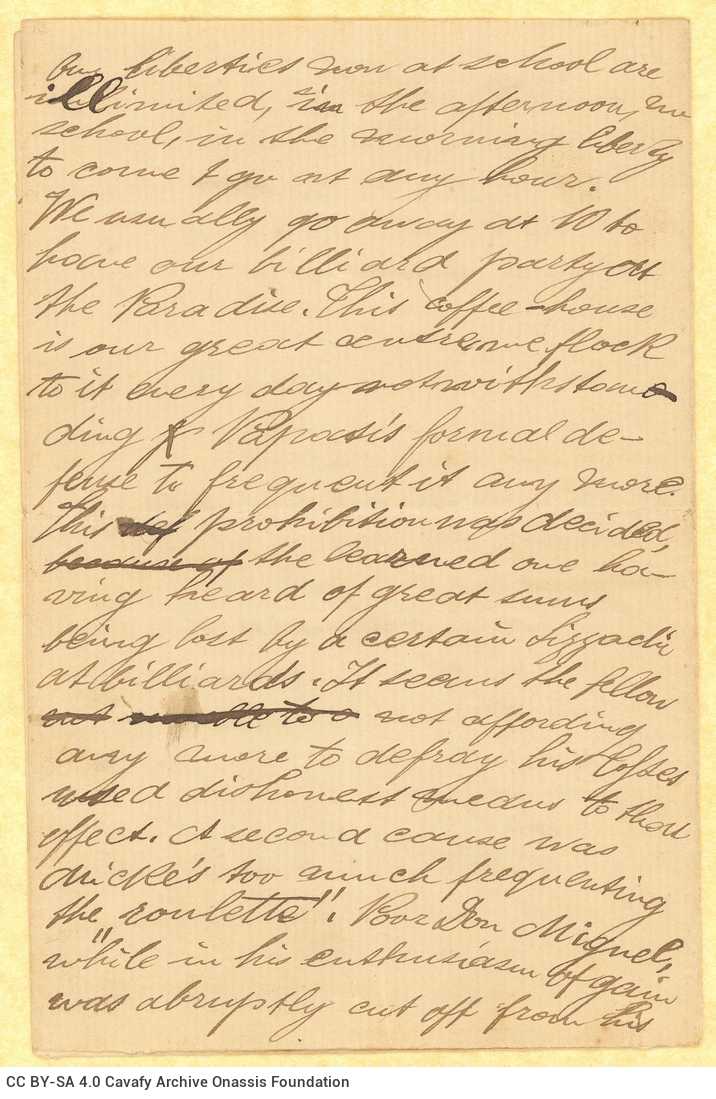 Our liberties now at school are
illimited, in the afternoon, no
school, in the morning liberty
to come & go at any hour.
We usually go away at 10 to
have our billiard party at
the Paradise. This coffee-house
is our great centre, we flock
to it every day notwithstan-
ding Papasis formal de-
fense to frequent it any more.
This prohibition was decided,
because of the learned one ha-
ving heard of great sums
being lost by a certain
at billiards. It seems the fellow
not to not affording
any more to defray his losses
used dishonest means to that
effect. A second cause was
Mické's too much frequenting
the "roulette". Poor Don Miguel,
while in his enthusiasm of gain
was abruptly cut off from his
CC BY-SA 4.0 Cavafy Archive Onassis Foundation